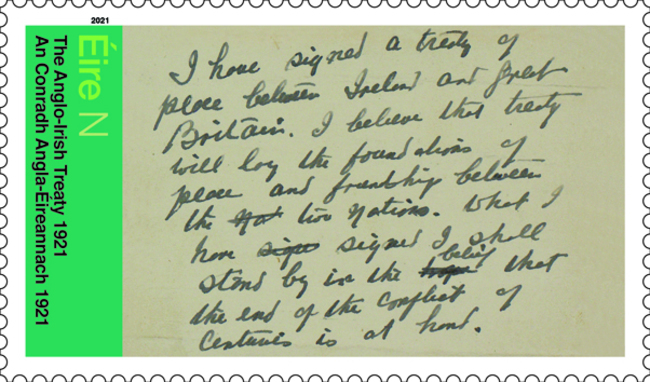 2021
Éire N
The Anglo-Irish Treaty 1921
An Conradh Angla-Éireannach 1921
I have signed a treaty of
peace between Ireland and Great
Britain. I believe that treaty
will lay the foundations of
peace and friendship between
the Nat two Nations. What I
have signe signed I shall
stand by in the hope belief that
the end of the conflict of
centuries is at hand.